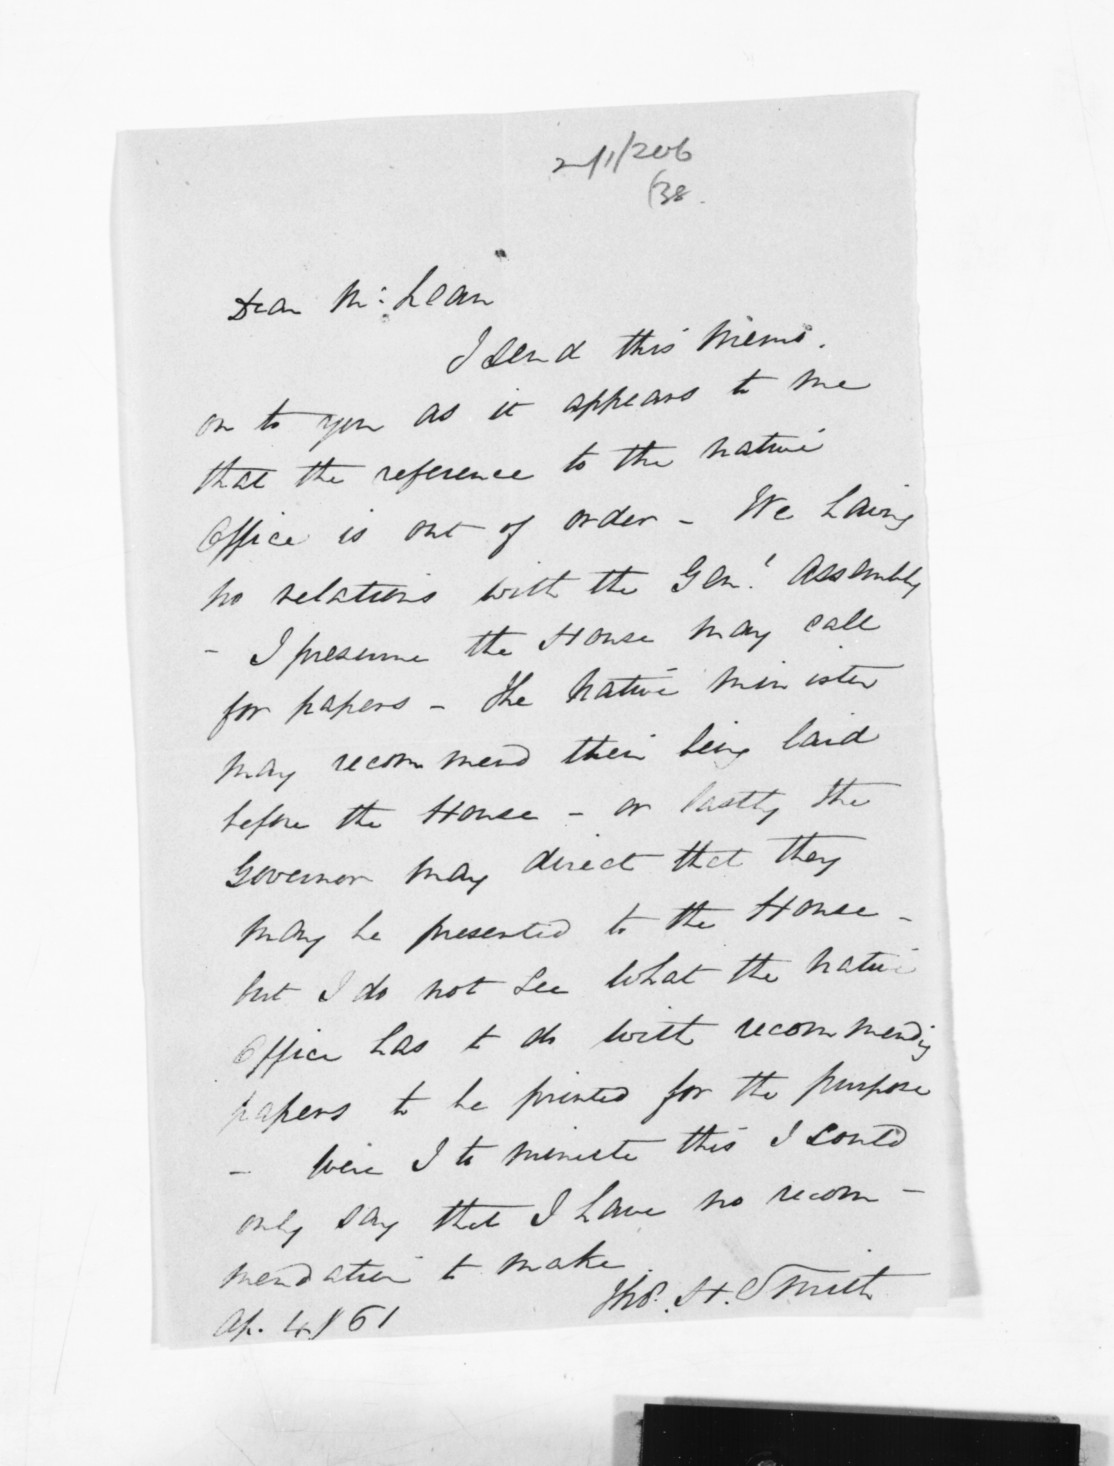 2/1/206
(38.
Dear Mc. Lean
I send this Memo.
on to you as it appears to me
that the reference to the native
Office is out of order - We having
no relations with the Genl. Assembly
- I presume the House may call
for papers - The Native Minister
may recommend their being laid
before the House - or lastly the
Governor may direct that they
may be presented to the House -
but I do not see what the native
Office has to do with recommending
papers to be printed for the purpose
- Were I to minute this I could
only say that I have no recom-
mendation to make
Thos. H. Smith
Ap. 4/61